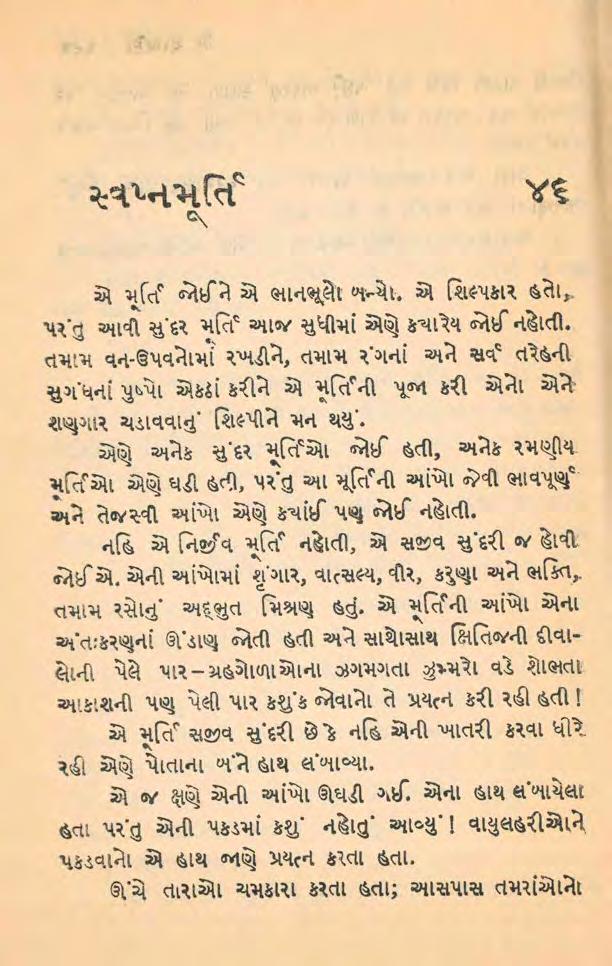 સ્વપ્નમૂર્તિ ૪૬
એ મૂર્તિ જોઈને એ ભાનભૂલો બન્યો. એ શિલ્પકાર હતો,
પરંતુ આવી સુંદર મૂર્તિ આજ સુધીમાં એણે કયારેય જોઈ નહોતી.
તમામ વન-ઉપવનોમાં રખડીને, તમામ રંગનાં અને સર્વ તરેહની
સુગંધનાં પુષ્પો એકઠાં કરીને એ મૂર્તિની પૂજા કરી એનો એને
શણગાર ચડાવવાનું શિલ્પીને મન થયું.
એણે અનેક સુંદર મૂર્તિઓ જોઈ હતી, અનેક રમણીય
મૂર્તિઓ એણે ઘડી હતી, પરંતુ આ મૂર્તિની આંખો જેવી ભાવપૂર્ણ
અને તેજસ્વી આંખો એણે કયાંઈ પણ જોઈ નહોતી.
નહિ એ નિર્જીવ મૂર્તિ નહોતી, એ સજીવ સુંદરી જ હોવી
જોઈએ. એની આંખોમાં શૃંગાર, વાત્સલ્ય, વીર, કરુણા અને ભક્તિ,
તમામ રસોનું અદ્ભુત મિશ્રણ હતું. એ મૂર્તિની આંખો એના
અંતઃકરણનાં ઊંડાણ જોતી હતી અને સાથોસાથ ક્ષિતિજની દીવા-
લોની પેલે પાર–ગ્રહગોળાઓના ઝગમગતા ઝુમ્મરો વડે શોભતા
આકાશની પણ પેલી પાર કશુંક જોવાનો તે પ્રયત્ન કરી રહી હતી!
એ મૂર્તિ સજીવ સુંદરી છે કે નહિ એની ખાતરી કરવા ધીરે
રહી એણે પોતાના બંને હાથ લંબાવ્યા.
એ જ ક્ષણે એની આંખો ઊઘડી ગઈ. એના હાથ લંબાયેલા
હતા પરંતુ એની પકડમાં કશું નહોતું આવ્યું! વાયુલહરીઓને
પકડવાનો એ હાથ જાણે પ્રયત્ન કરતા હતા.
ઊંચે તારાઓ ચમકારા કરતા હતા; આસપાસ તમરાંઓનો